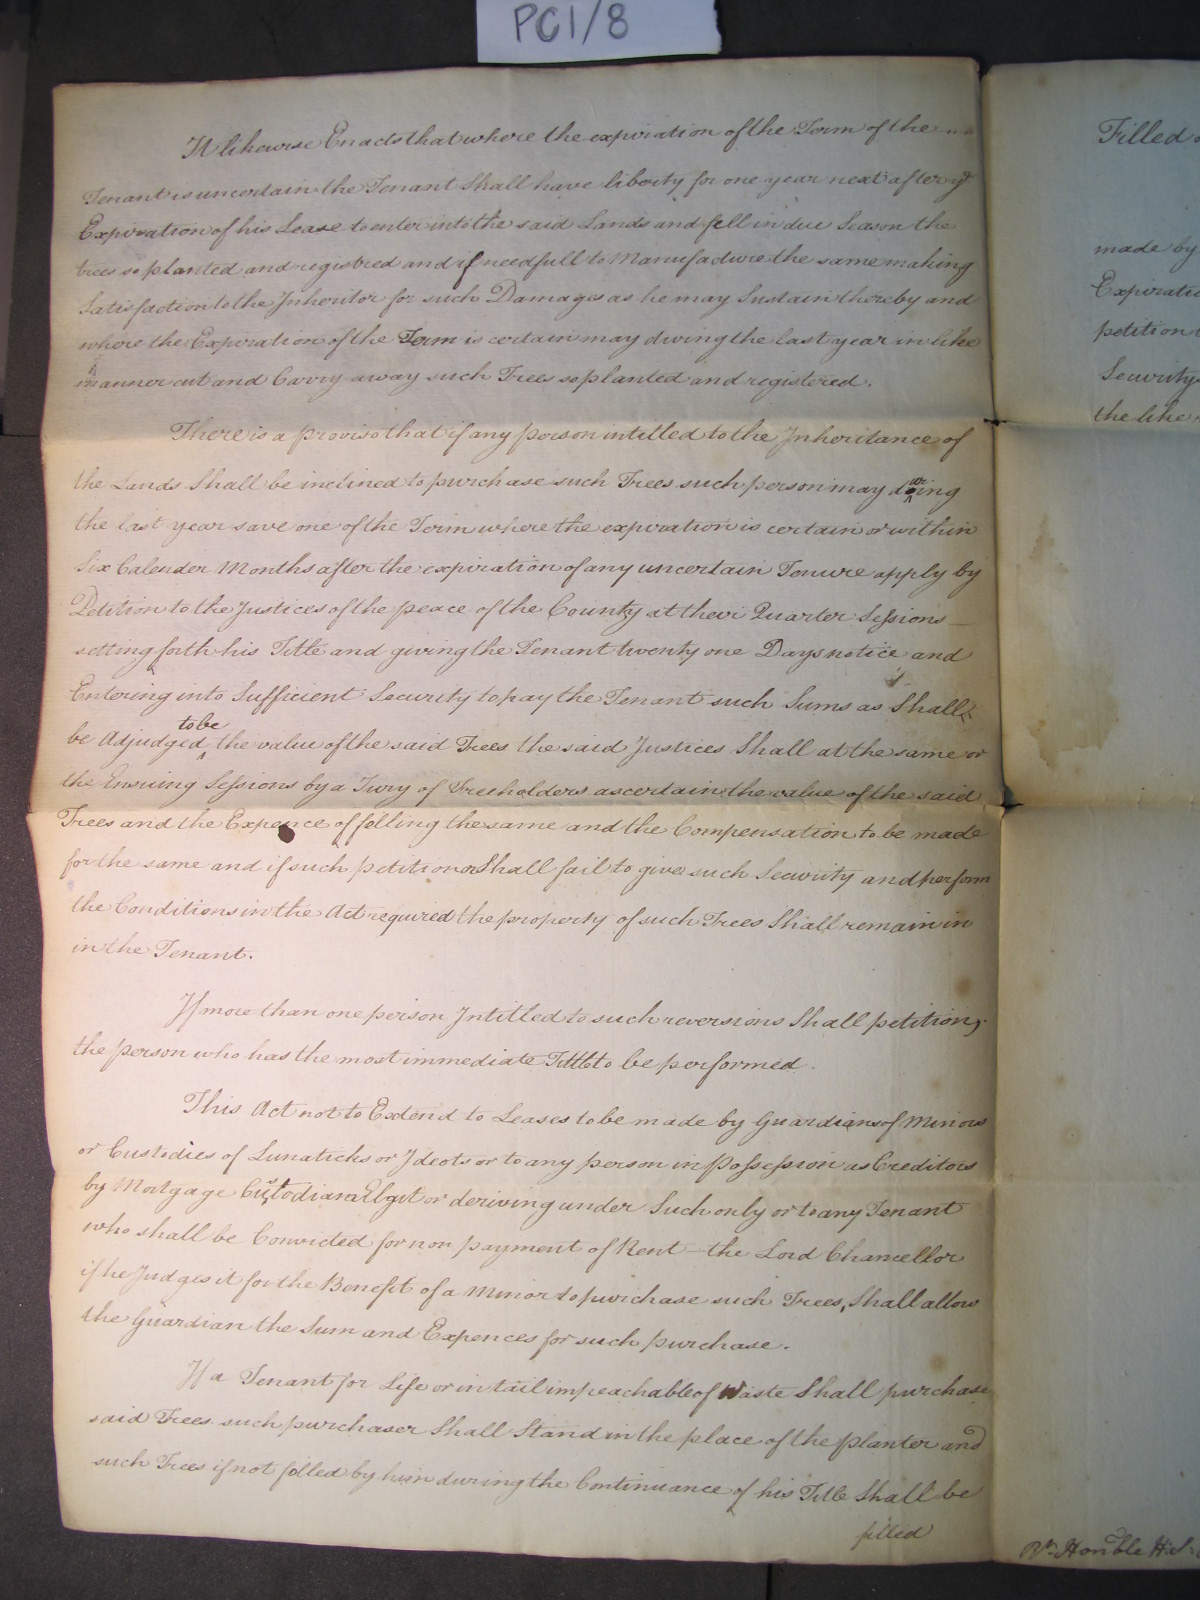 PC1/8
It likewise Enacts that where the expiration of the Term of the
Tenant is uncertain the Tenant Shall have liberty for one year next after ye
Expiration of his Lease to enter into the said Lands and fell in due Season the
trees so planted and registred and if needfull to Manufacture the same making
Satisfaction to the Inheritor for such Damages as he may Sustain thereby and
where the Expiration of the Term is certain may during the last year in like
manner cut and Carry away such Trees so planted and registered.
There is a proviso that if any person intitled to the Inheritance of
the Lands Shall be inclined to purchase such Trees such person may during
the last year save one of the Term where the expiration is certain or within
Six Calender Months after the expiration of any uncertain Tenure apply by
Petition to the Justices of the peace of the County at their Quarter Sessions
setting forth his Title and giving the Tenant twenty one Days notice and
Entering into Sufficient Security to pay the Tenant such Sums as Shall
be Adjudged to be the value of the said Trees the said Justices Shall at the same or
the Ensuing Sessions by a Jury of Freeholders ascertain the value of the said
Trees and the Expence of felling the same and the Compensation to be made
for the same and if such petitioner Shall fail to give such Security and perform
the Conditions in the Act required the property of such Trees Shall remain in
in the Tenant.
If more than one person Intitled to such reversions Shall petition,
the person who has the most immediate Title to be performed.
This Act not to Extend to Leases to be made by Guardians of Minors
or Custodies of Lunaticks or Ideots or to any person in possession as Creditors
by Mortgage Custodiam Elgit or deriving under Such only or to any Tenant
who shall be Convicted for non payment of Rent - the Lord Chancellor
if he Judges it for the Benefit of a Minor to purchase such Trees, Shall allow
the Guardian the Sum and Expences for such purchase.
If a Tenant for Life or in tail impeachable of Waste Shall purchase
said Trees such purchaser Shall Stand in the place of the planter and
such Trees if not felled by him during the Continuance of his Title Shall be
filled
Filled
made by
petition
Security
the like
Rt Honble